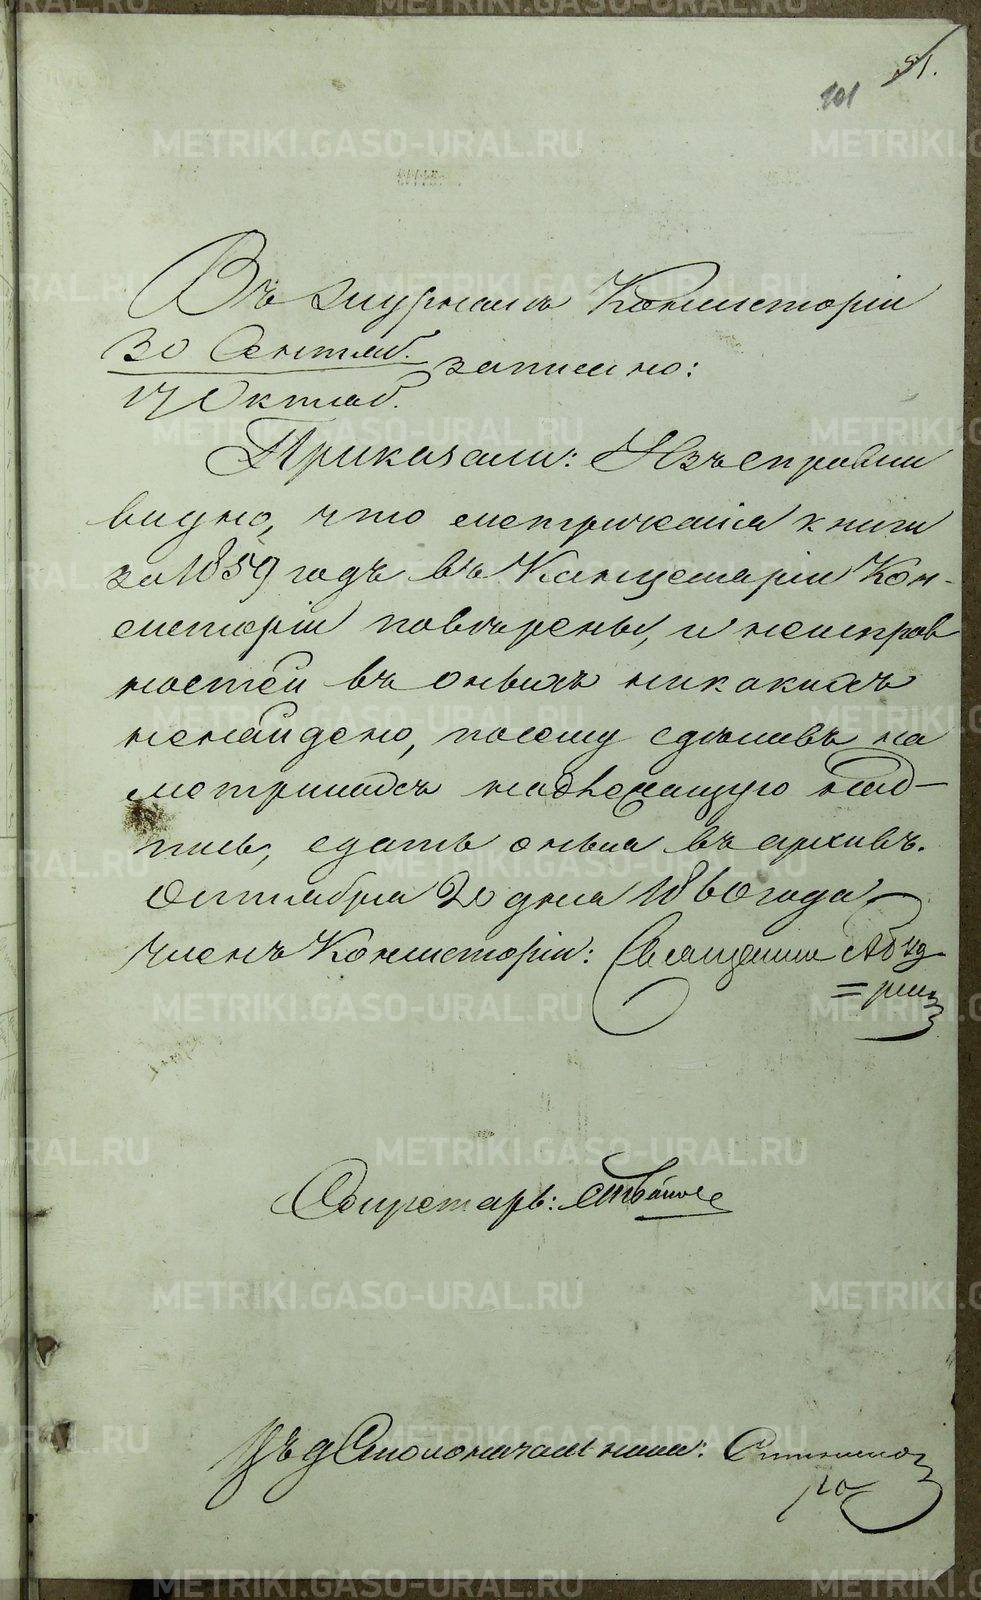 51.
101
Въ журналѣ Консисторіи
30 Сентяб.
17 Октяб. записано:
Приказали: Изъ справки
видно, что метрическія книги
за 1859 годъ въ Канцеляріи Кон-
систоріи повѣрены, и неисправ
ностей въ оныхъ никакихъ
ненайдено, посему сдѣлавъ на
метрикахъ надлежащую над-
пись, сдать оныя въ архивъ.
Октября 20 дня 1860 года
Членъ Консисторіи: Священникъ
Секретарь:
Столоначальника:
METRIKI.GASO-URAL.RU